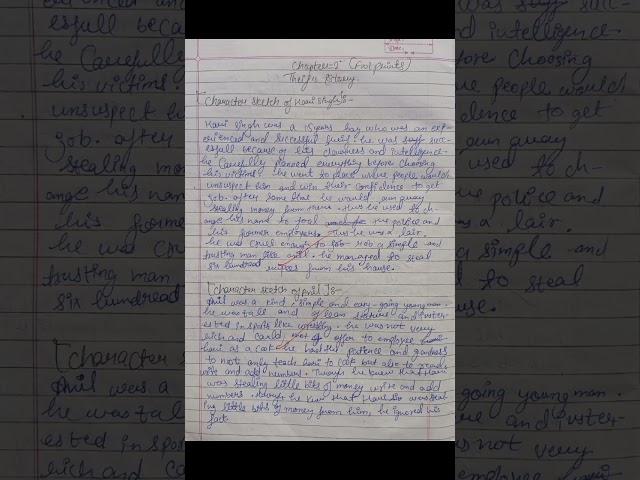 Chapter-1 (Footprints)
Thief's Story
Character sketch of Hari Singh :-
Hari Singh was a 15 years boy who was an exp-
erienced and successful thief. he was succ-
essfull because of his cleverness and intelligence.
he Carefully planned everything before choosing
his victims. he went to place where people would
unsuspect him and win their confidence to get
job. after some time he would run away
stealing money from more. Thus he used to ch-
ange his name to fool the police and
his former employers. Thus he was a liar.
he was cruel enough to rob a simple and
trusting man like anil. he managed to steal
six hundread rupees from his house.
[Character sketch of anil] :-
Anil was a kind, simple and easy-going young man.
he was tall and of lean and inter-
ested in sports like wrestling. he was not very
rich and could not offer to employee
hari as a cook. he had patience and goodness
to not only teach hari to cook but also to
write and add numbers. Though he knew that Hari
was stealing little bits of money write and add
numbers. though he knew that Hari was steal
ing little bits of money from him, he ignored his
fact